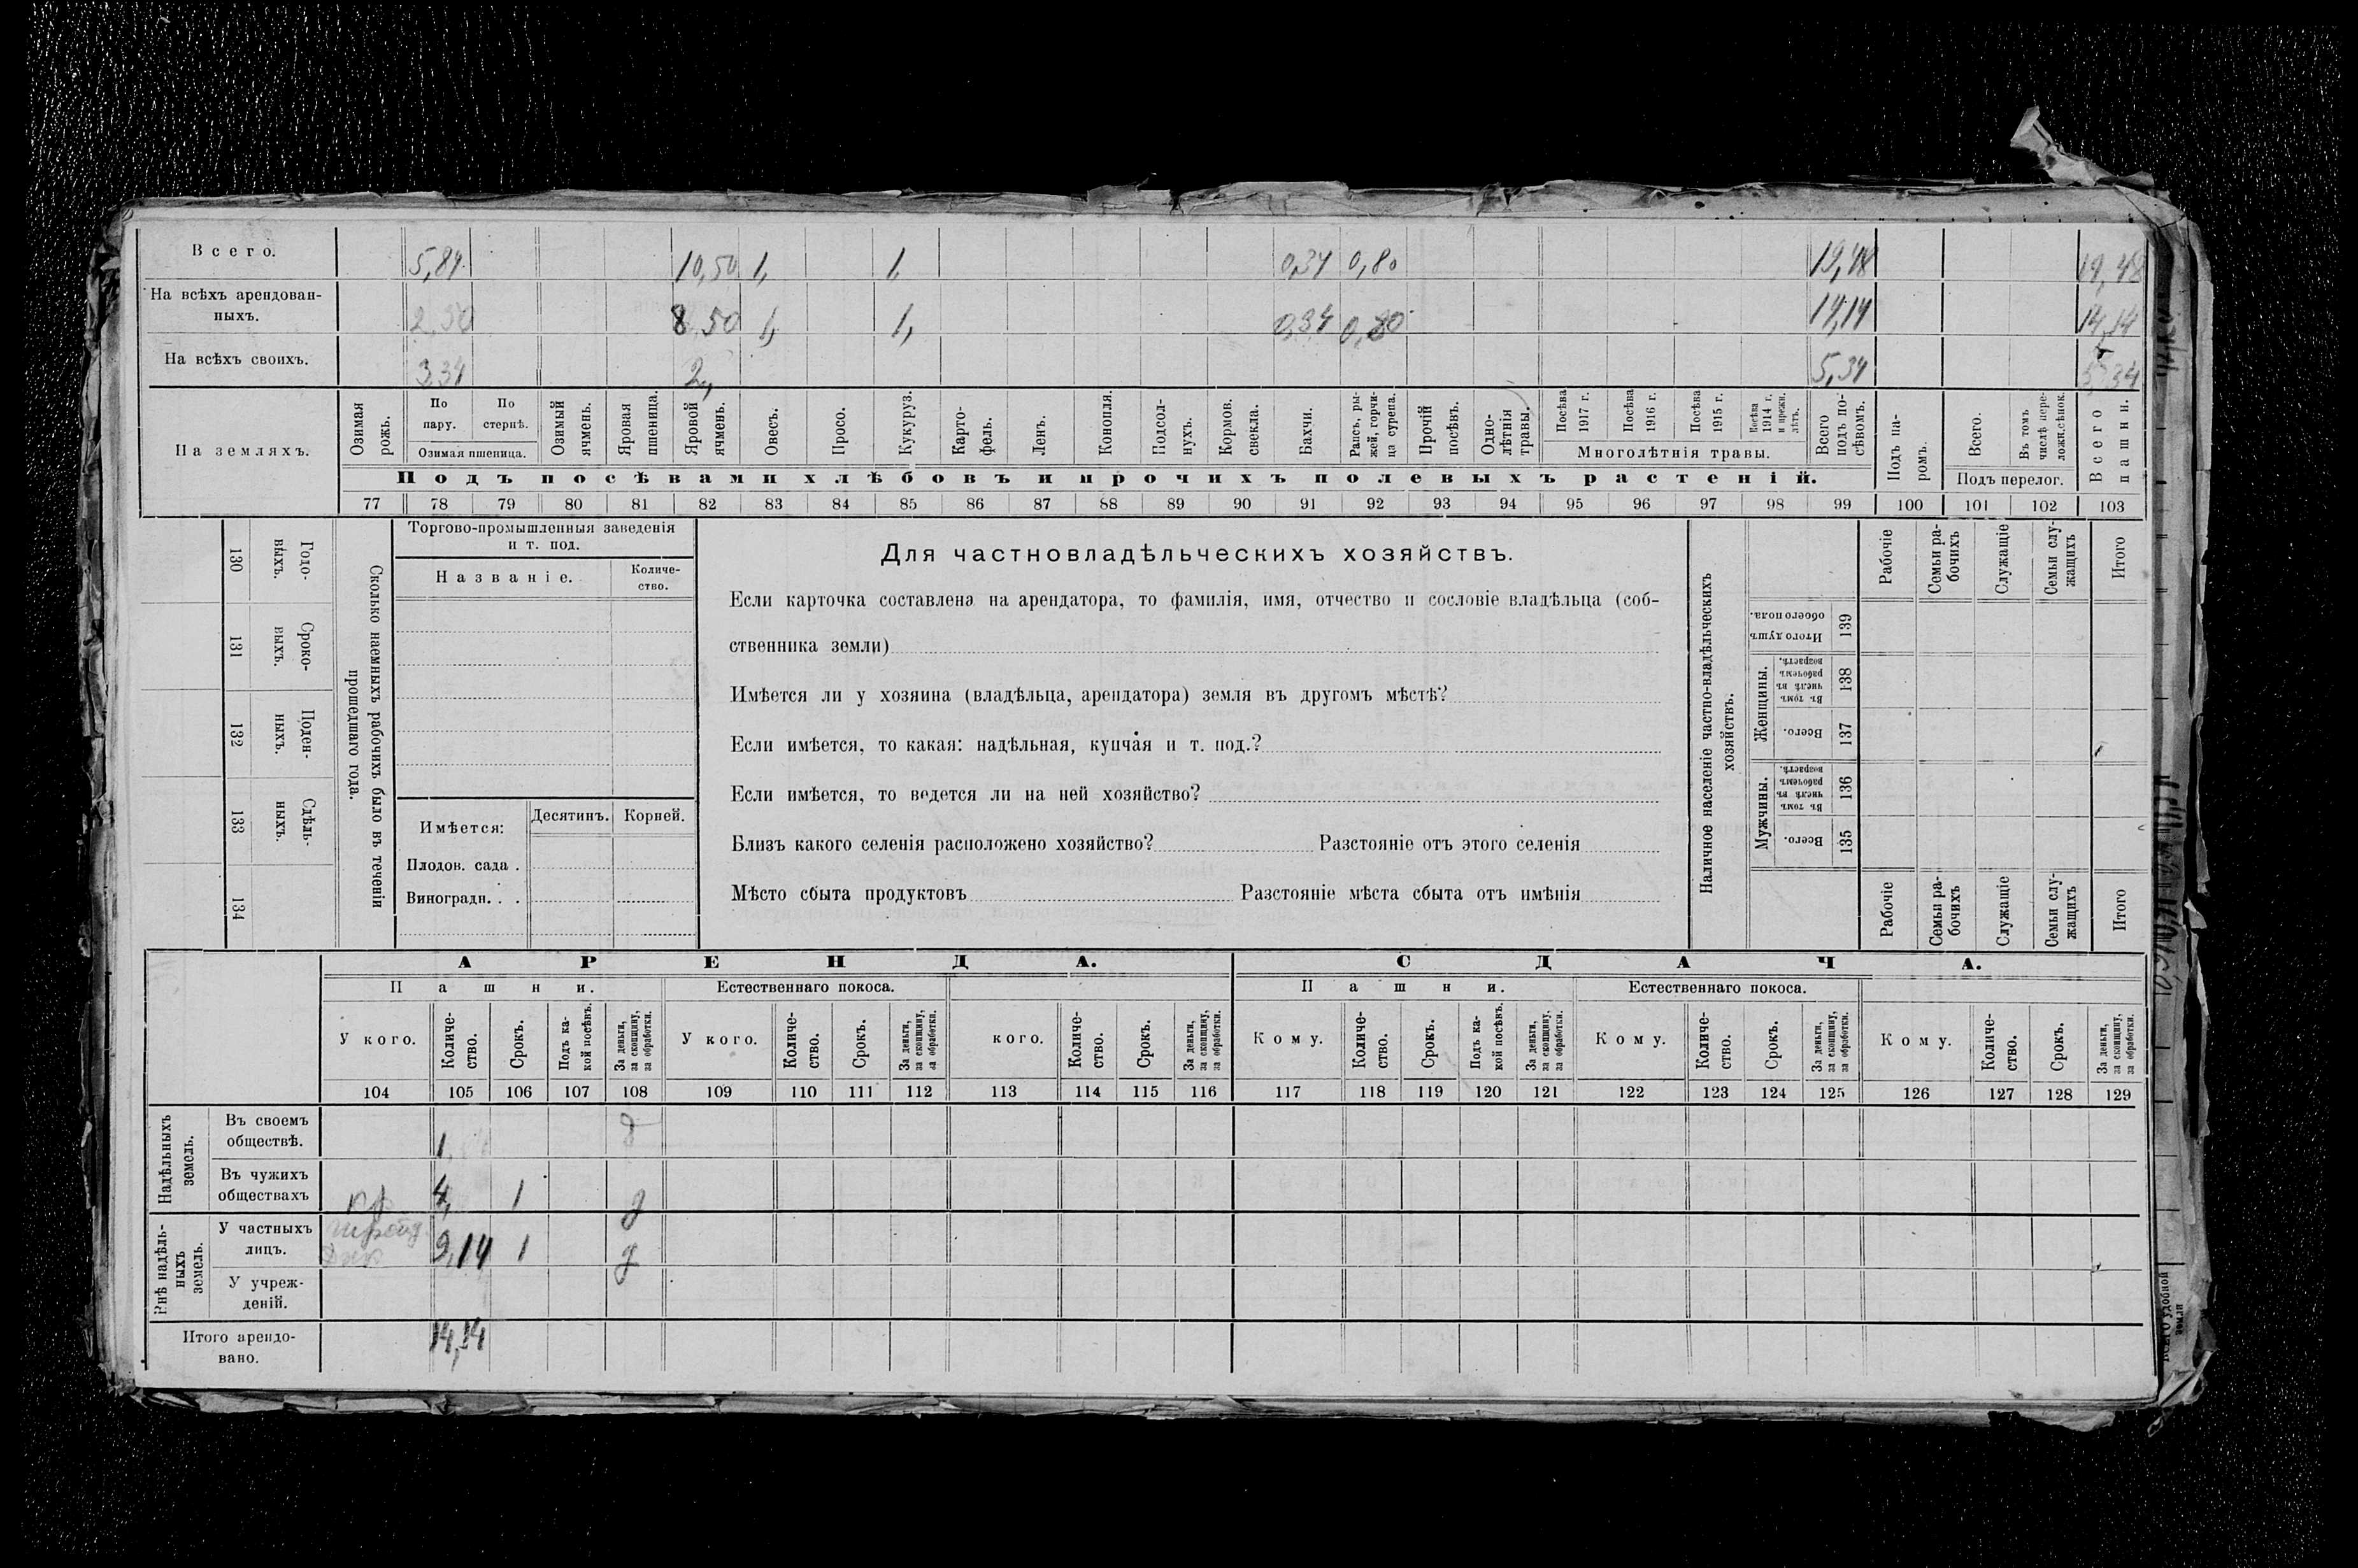 Всего. 5,84 10,50 1, 1, 0,34 0,80 19,48 19,48
На всѣхъ арендован-
ныхъ. 2,50 8,50 1, 1, 0,34 0,80 14,14 14,14
На всѣхъ своихъ. 3,34 2, 5,34 5,34
На земляхъ.
Озимая рожь.
По пару.
По стернѣ.
Озимая пшеница.
Озимый ячмень.
Яровая пшеница.
Яровой ячмень.
Овесъ.
Просо.
Кукуруз.
Карто-
фель.
Ленъ.
Конопля.
Подсол-
нухъ.
Кормов.
свекла.
Бахчи.
Рапсъ, ры-
жей, горчи-
ца сурепа.
Прочій
посѣвъ.
Одно-
лѣтнія
травы.
Посѣва 1917 г.
Посѣва 1916 г.
Посѣва 1915 г.
Посѣва 1914 г. и прежн. лѣтъ.
Многолѣтнія травы.
Всего подъ по-
сѣвомъ.
Подъ па-
ромъ.
Всего.
Въ томъ числѣ пере-
ложн. сѣнок.
Подъ перелог.
Всего пашни.
Подъ посѣвами хлѣбовъ и прочихъ полевыхъ растеній.
77 78 79 80 81 82 83 84 85 86 87 88 89 90 91 92 93 94 95 96 97 98 99 100 101 102 103
Сколько наемныхъ рабочихъ было въ теченіи
прошедшаго года.
Годо-
выхъ.
130
Сроко-
выхъ.
131
Поден-
ныхъ.
132
Сдѣль-
ныхъ.
133
134
Торгово-промышленныя заведенія
и т. под.
Названіе.
Количе-
ство.
Имѣется:
Десятинъ.
Корней.
Плодов. сада .
Виноградн. . .
Для частновладѣльческихъ хозяйствъ.
Если карточка составлена на арендатора, то фамилія, имя, отчество и сословіе владѣльца (соб-
ственника земли)
Имѣется ли у хозяина (владѣльца, арендатора) земля въ другомъ мѣстѣ?
Если имѣется, то какая: надѣльная, купчая и т. под.?
Если имѣется, то ведется ли на ней хозяйство?
Близъ какого селенія расположено хозяйство? Разстояніе отъ этого селенія
Мѣсто сбыта продуктовъ Разстояніе мѣста сбыта отъ имѣнія
Наличное населеніе частно-владѣльческихъ
хозяйствъ.
Рабочіе
Семьи ра-
бочихъ
Служащіе
Семьи слу-
жащихъ
Итого
Итого душъ
обоего пола.
139
Женщины.
Въ томъ числѣ въ рабочемъ возрастѣ.
138
Всего.
137
Мужчины.
Въ томъ числѣ въ рабочемъ возрастѣ.
136
Всего.
135
Рабочіе
Семьи ра-
бочихъ
Служащіе
Семьи слу-
жащихъ
Итого
АРЕНДА.
СДАЧА.
Пашни.
Естественнаго покоса.
Пашни.
Естественнаго покоса.
У кого.
Количе-
ство.
Срокъ.
Подъ ка-
кой посѣвъ.
За деньги,
за скопщину,
за обработки.
У кого.
Количе-
ство.
Срокъ.
За деньги,
за скопщину,
за обработки.
кого.
Количе-
ство.
Срокъ.
За деньги,
за скопщину,
за обработки.
Кому.
Количе-
ство.
Срокъ.
Подъ ка-
кой посѣвъ.
За деньги,
за скопщину,
за обработки.
Кому.
Количе-
ство.
Срокъ.
За деньги,
за скопщину,
за обработки.
Кому.
Количе-
ство.
Срокъ.
За деньги,
за скопщину,
за обработки.
104 105 106 107 108 109 110 111 112 113 114 115 116 117 118 119 120 121 122 123 124 125 126 127 128 129
Надѣльныхъ
земель.
Въ своемъ
обществѣ. 1, д
Въ чужихъ
обществахъ кр 4, 1 д
Внѣ надѣль-
ныхъ
земель.
У частныхъ
лицъ. 9,14 1 д
У учреж-
деній.
Итого арендо-
вано. 14,14